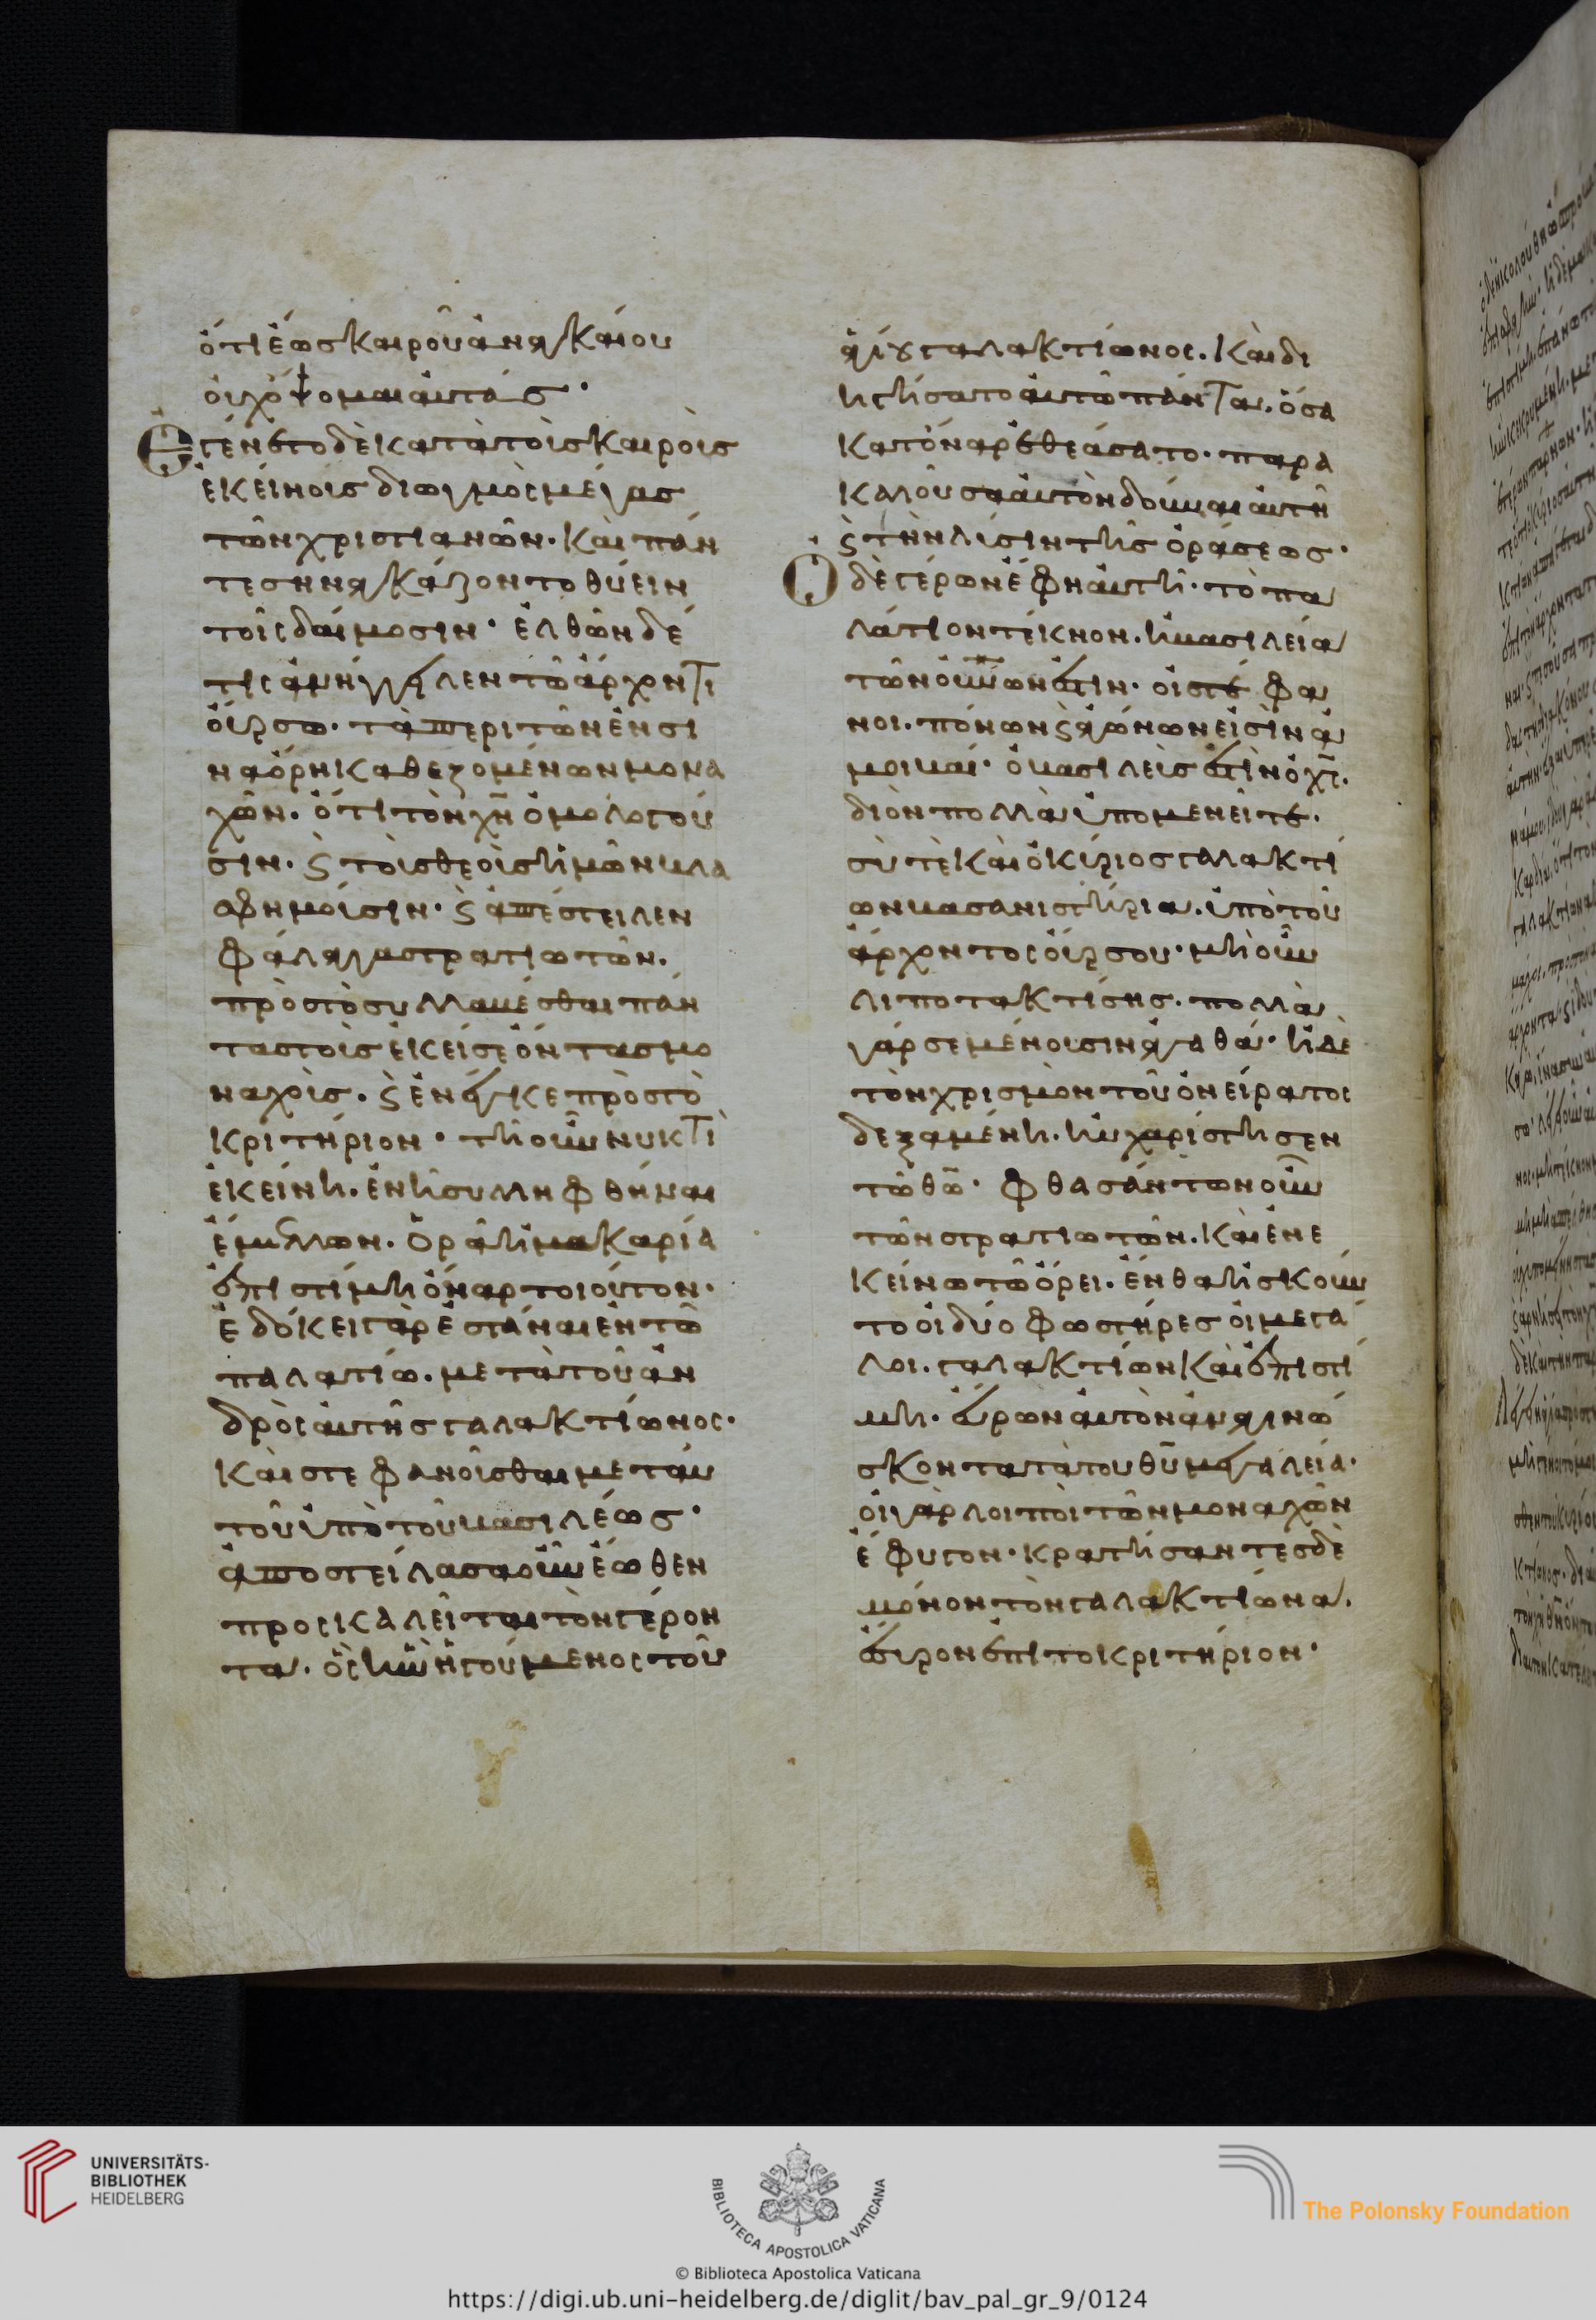 ὅτι ἕως καιροῦ ἀναγκαίου
οὐχ ὄψομαι αὐτάς·
Ἐγένετο δὲ κατὰ τοὺς καιροὺς
ἐκείνους διωγμὸς μέγας
τῶν χριστιανῶν. καὶ πάν
τες ἠναγκάζοντο θύειν
τοῖς δαίμοσιν· ἐλθὼν δέ
τις ἀνήγγειλεν τῶ ἄρχοντι
οὔρσω. τὰ περὶ τῶν ἐν σι
να ὄρη καθεζομένων μονα
χῶν. ὅτι τὸν χν ὁμολογοῦ
σιν. ϛ τοὺς θεοὺς ἡμῶν βλα
σφημοῦσιν· ϛ ἀπέστειλεν
φάλαγγα στρατιωτῶν.
πρὸς τὸ συλλαβέσθαι πάν
τας τοὺς ἐκεῖσε ὄντας μο
ναχούς. ϛ ἐνεγκε πρὸς τὸ
κριτήριον· τῆ οὖν νυκτὶ
ἐκείνη. ἐν ἧ συλληφθῆναι
ἔμελλον. ὁρᾶ ἡ μακαρία
ἐπιστίμη ὄναρ τοιοῦτον.
ἐδόκει γὰρ ἑστάναι ἐν τῶ
παλατίω. μετὰ τοῦ ἀν
δρὸς αὐτῆς γαλακτίωνος.
καὶ στεφανοῦσθαι μετ αὐ
τοῦ ὑπὸ τοῦ βασιλέως·
ἀποστείλασα οὖν ἕωθεν
προσκαλεῖται τὸν γέρον
τα. ὃς ἦν ἡγούμενος τοῦ
ἁγίου γαλακτίωνος. καὶ δι
ηγήσατο αὐτῶ πάντα. ὅσα
κατόναρ ἐθεάσατο. παρα
καλοῦσα αὐτὸν δοῦναι αὐτῆ
ϛ τὴν λύσιν τῆς ὁράσεως·
Ὁ δὲ γέρων ἔφη αὐτῆ· τὸ πα
λάτιον τέκνον. ἡ βασιλεία
τῶν οὐνῶν ἐστιν. οἱ στέφα
νοι. πόνων ϛ ἀγώνων εἰσὶν ἀ
μοιβαί. ὁ βασιλεύς ἐστιν ὁ χς.
διὸν πολλὰ ὑπομενεῖτε.
σύ τε καὶ ὁ κύριος γαλακτί
ων βασανιστήρια. ὑπὸ τοῦ
ἄρχοντος οὔρσου· μὴ οὖν
λιποτακτίσης. πολλὰ
γάρ σε μένουσιν ἀγαθά· ἡ δὲ
τὸν χρισμὸν τοῦ ὀνείρατος
δεξαμένη. ηὐχαρίστησεν
τῶ θω. φθασάντων οὖν
τῶν στρατιωτῶν. καὶ ἐν ἐ
κείνω τῶ ὄρει. ἔνθα ἠσκοῦν
το οἱ δύο φωστῆρες οἱ μεγά
λοι. γαλακτίων καὶ ἐπιστί
μη. εὗρων αὐτὸν ἀναγινώ
σκοντα τὰ τοῦ θυ μεγαλεῖα.
οἱ γὰρ λοιποὶ τῶν μοναχῶν
ἔφυγον. κρατήσαντες δὲ
μόνον τὸν γαλακτίωνα.
ἔσυρον ἐπὶ το κριτήριον·
UNIVERSITÄTS-
BIBLIOTHEK
HEIDELBERG
BIBLIOTECA APOSTOLICA VATICANA
The Polonsky Foundation
© Biblioteca Apostolica Vaticana
https://digi.ub.uni-heidelberg.de/diglit/bav_pal_gr_9/0124